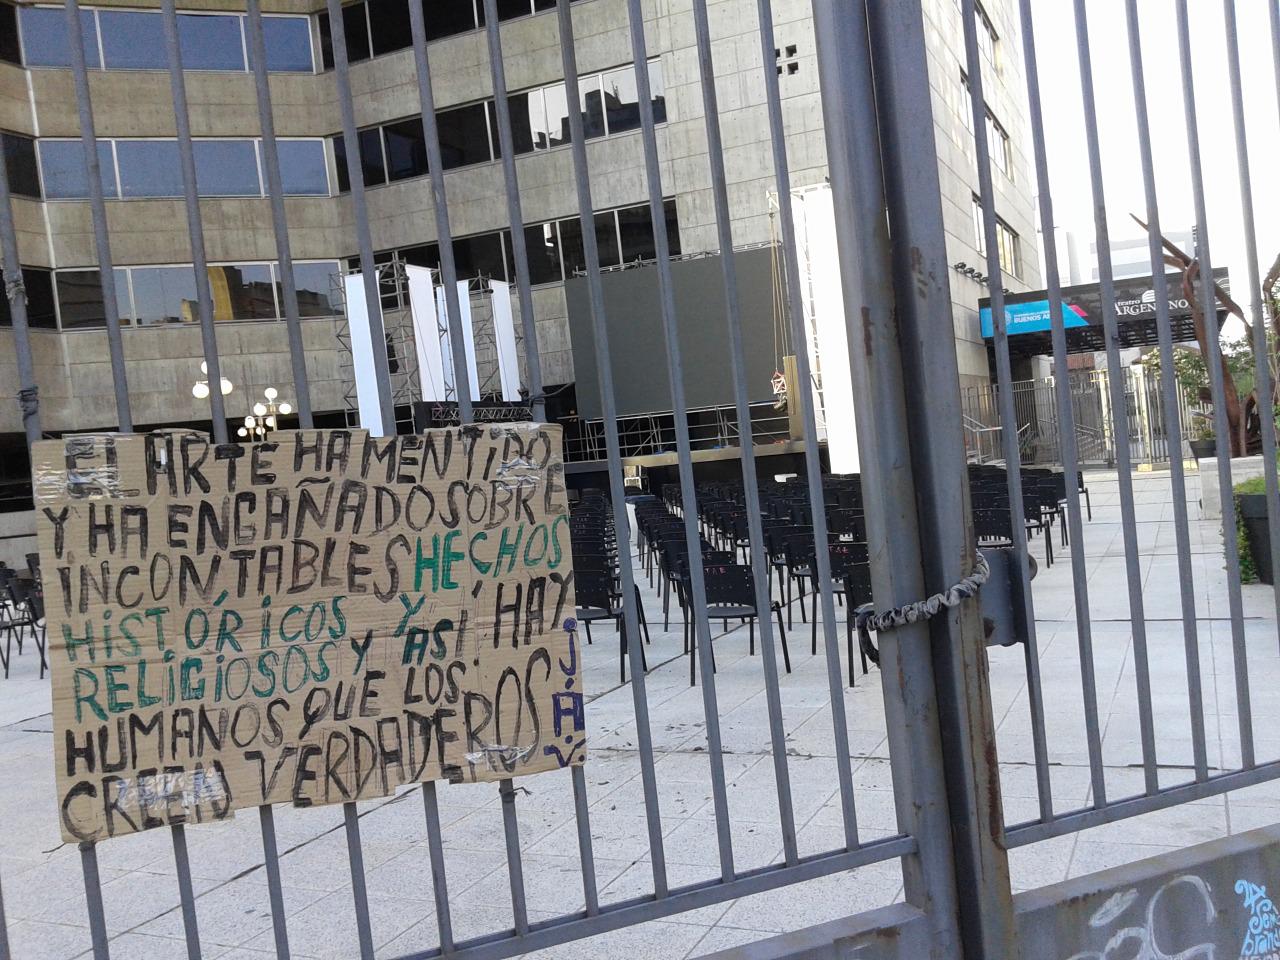 EL ARTE HA MENTIDO
Y HA ENGAÑADO SOBRE
INCONTABLES HECHOS
HiSTÓRiCOS Y ASÍ HAY
RELiGiOSOS Y
HUMANOS QUE LOS
CREEN VERDADEROS
J.A.V.
BUENOS
teatro
ARGENTINO
TAE